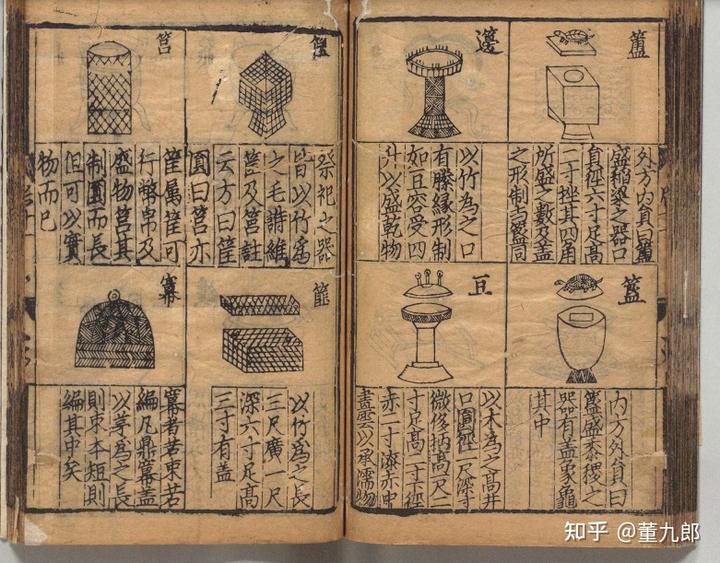 簠
外方内貟曰簠
盛稻粱之器口
貟徑六寸足高
二寸挫其四角
所盛之數及盖
之形制与簋同
籩
以竹為之口
有縢縁形制
如豆容受四
升以盛乾物
簋
内方外貟曰
簋盛黍稷之
器有盖象龜
其中
豆
以木為之高并
口圓徑一尺深寸
柄高一尺二
寸足高二寸下徑
赤一寸漆赤中
畫雲以承濡物
筐
祭祀之器
皆以竹爲
之毛詩維
筐及筥註
云方曰筐
圓曰筥亦
筥
筐属筐可
行幣帛及
盛物筥其
制圓而長
但可以實
物而已
篚
以竹爲之長
三尺廣一尺
深六寸足高
三寸有盖
幕
幕者若束若
編乃鼎幕盖
以茅爲之長
則束本短則
編其中矣
知乎 @董九郎